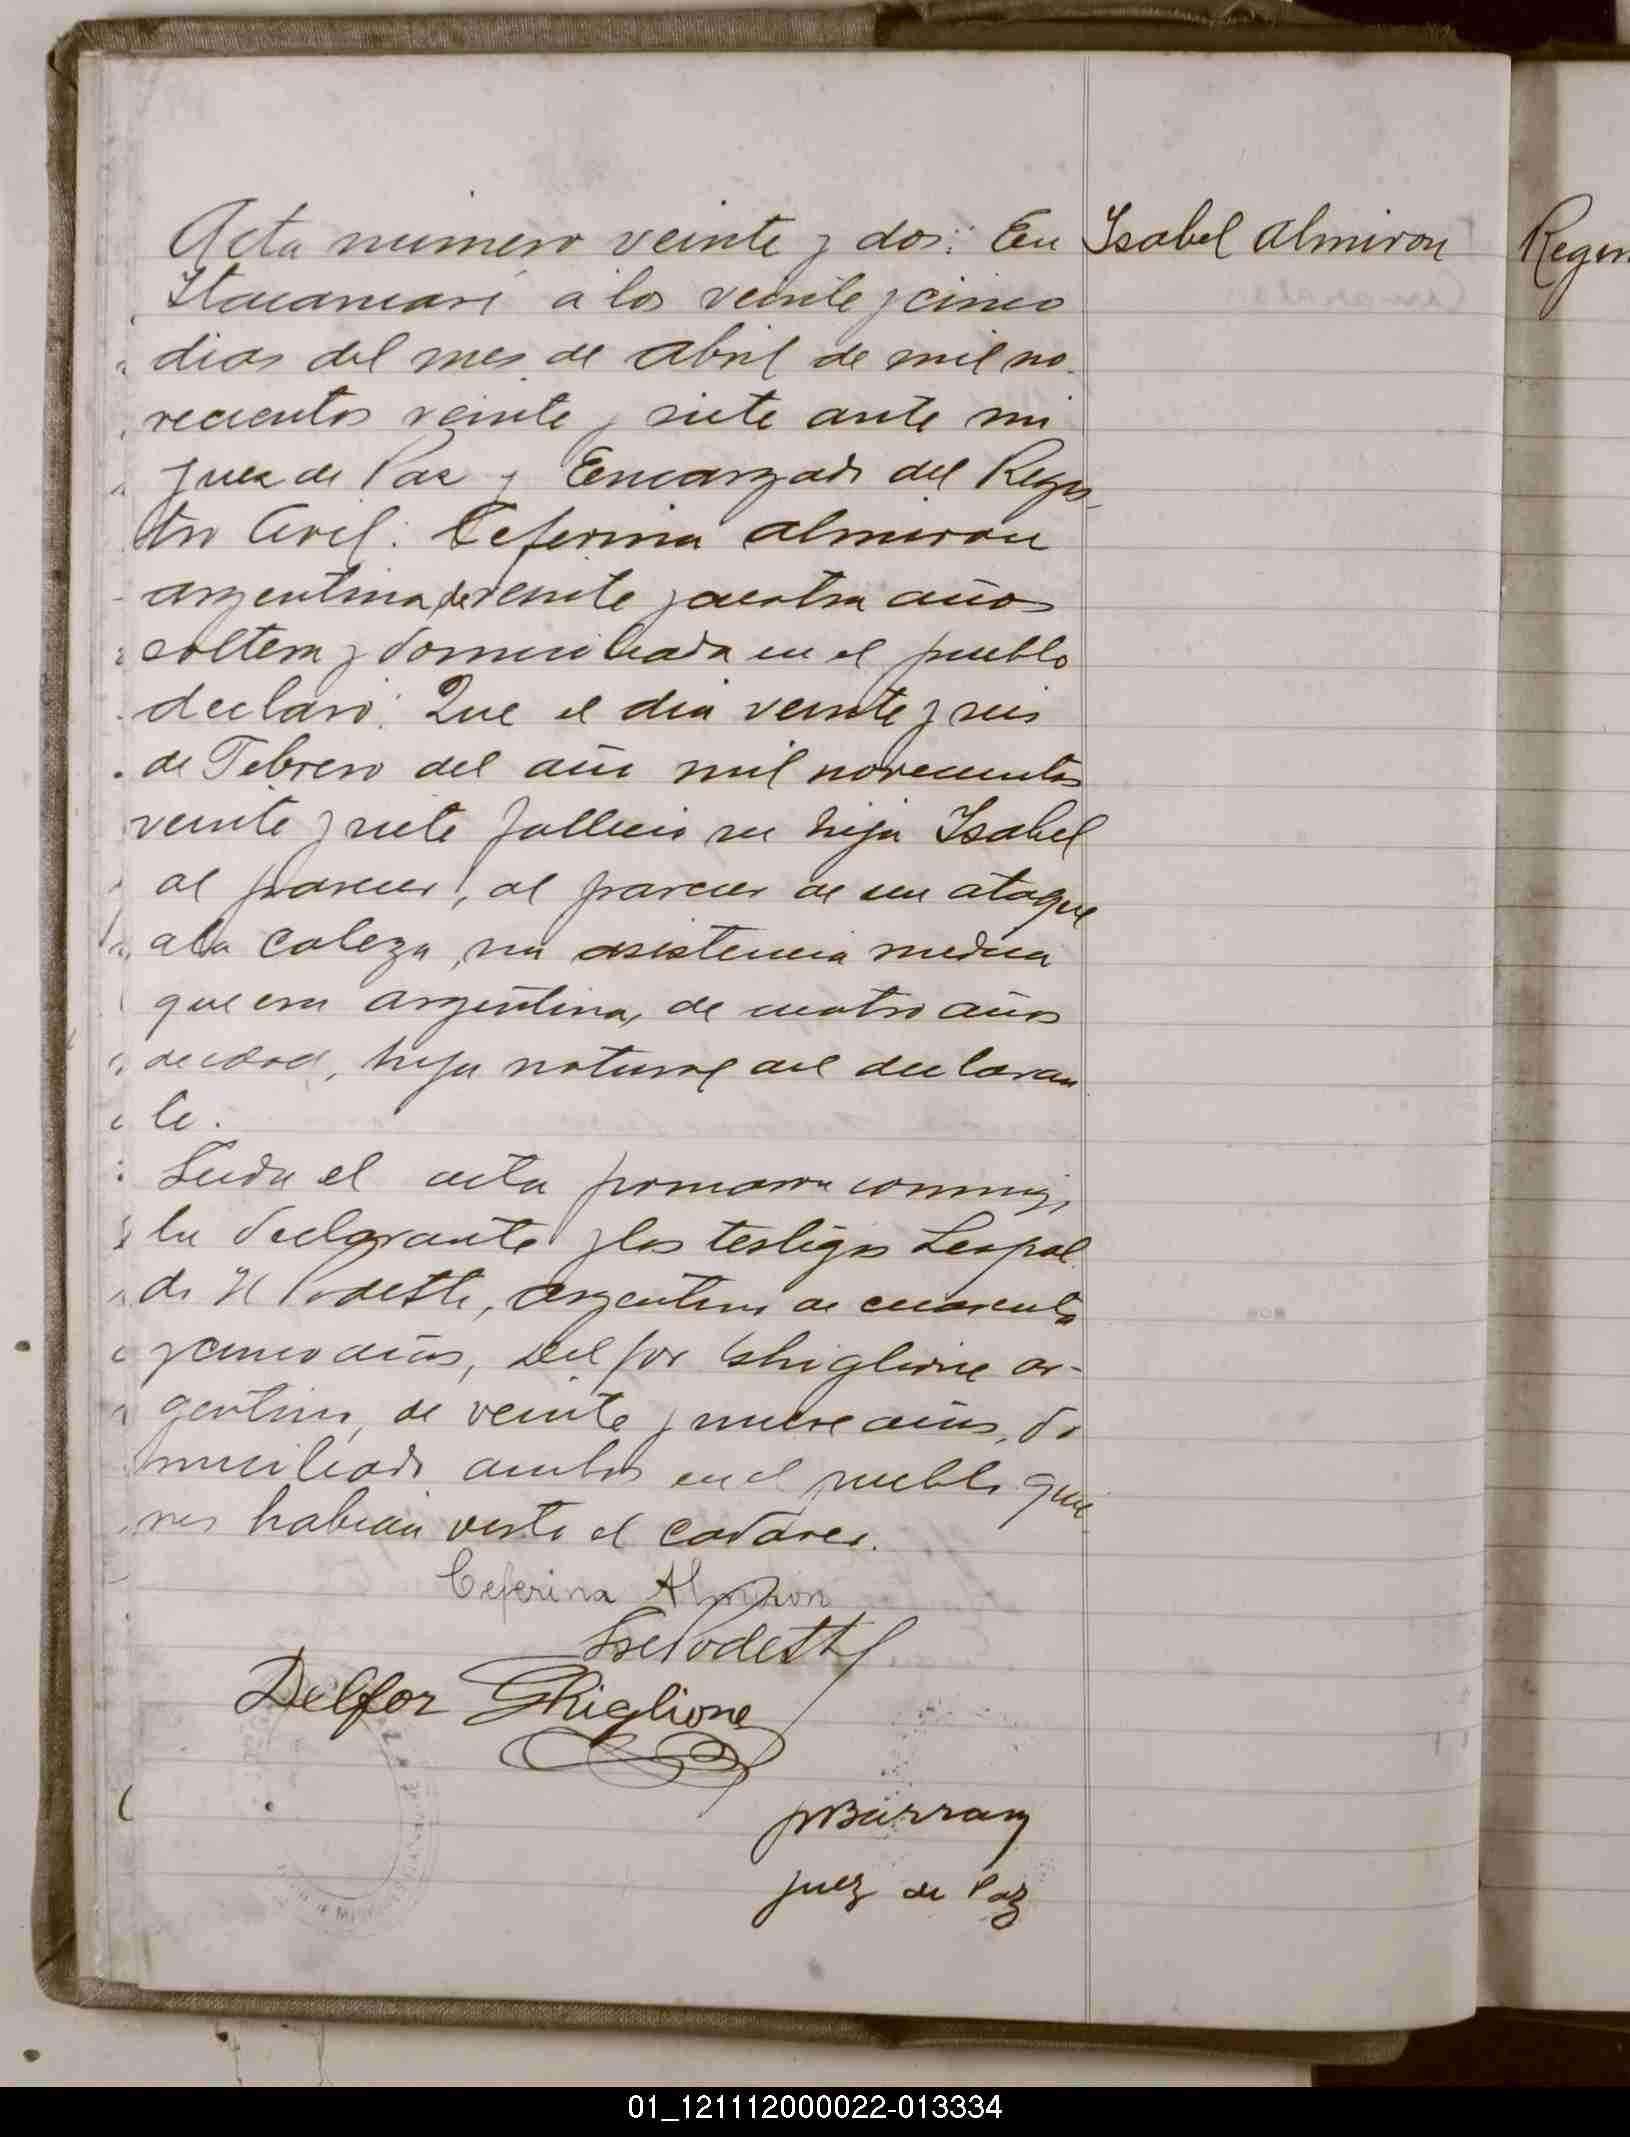 Acta número veinte y dos: En
Itacaruaré a los veinte y cinco
dias del mes de abril de mil no-
vecientos veinte y siete ante mi
Juez de Paz y Encargado del Regis-
tro Civil: Ceferina Almiron
argentina, de veinte y cuatro años
soltera y domiciliada en el pueblo
declaró: Que el dia veinte y seis
de Febrero del año mil novecientos
veinte y siete falleció su hija Isabel
al parecer, al parecer de un ataque
a la cabeza, sin asistencia medica
que era argentina, de cuatro años
de edad, hija natural del declaran
te.
Leida el acta firmaron conmigo,
la declarante y los testigos Leopol
do H Podestti, argentino de cuarenta
y cinco años, Delfor Ghiglione ar-
gentino, de veinte y nueve años, do
miciliado ambos en el pueblo quie-
nes habian visto el cadaver.
Ceferina Almiron
Podestti
Delfor Ghiglione
Barrany
Juez de Paz
Isabel Almiron
Regin
01_121112000022-013334